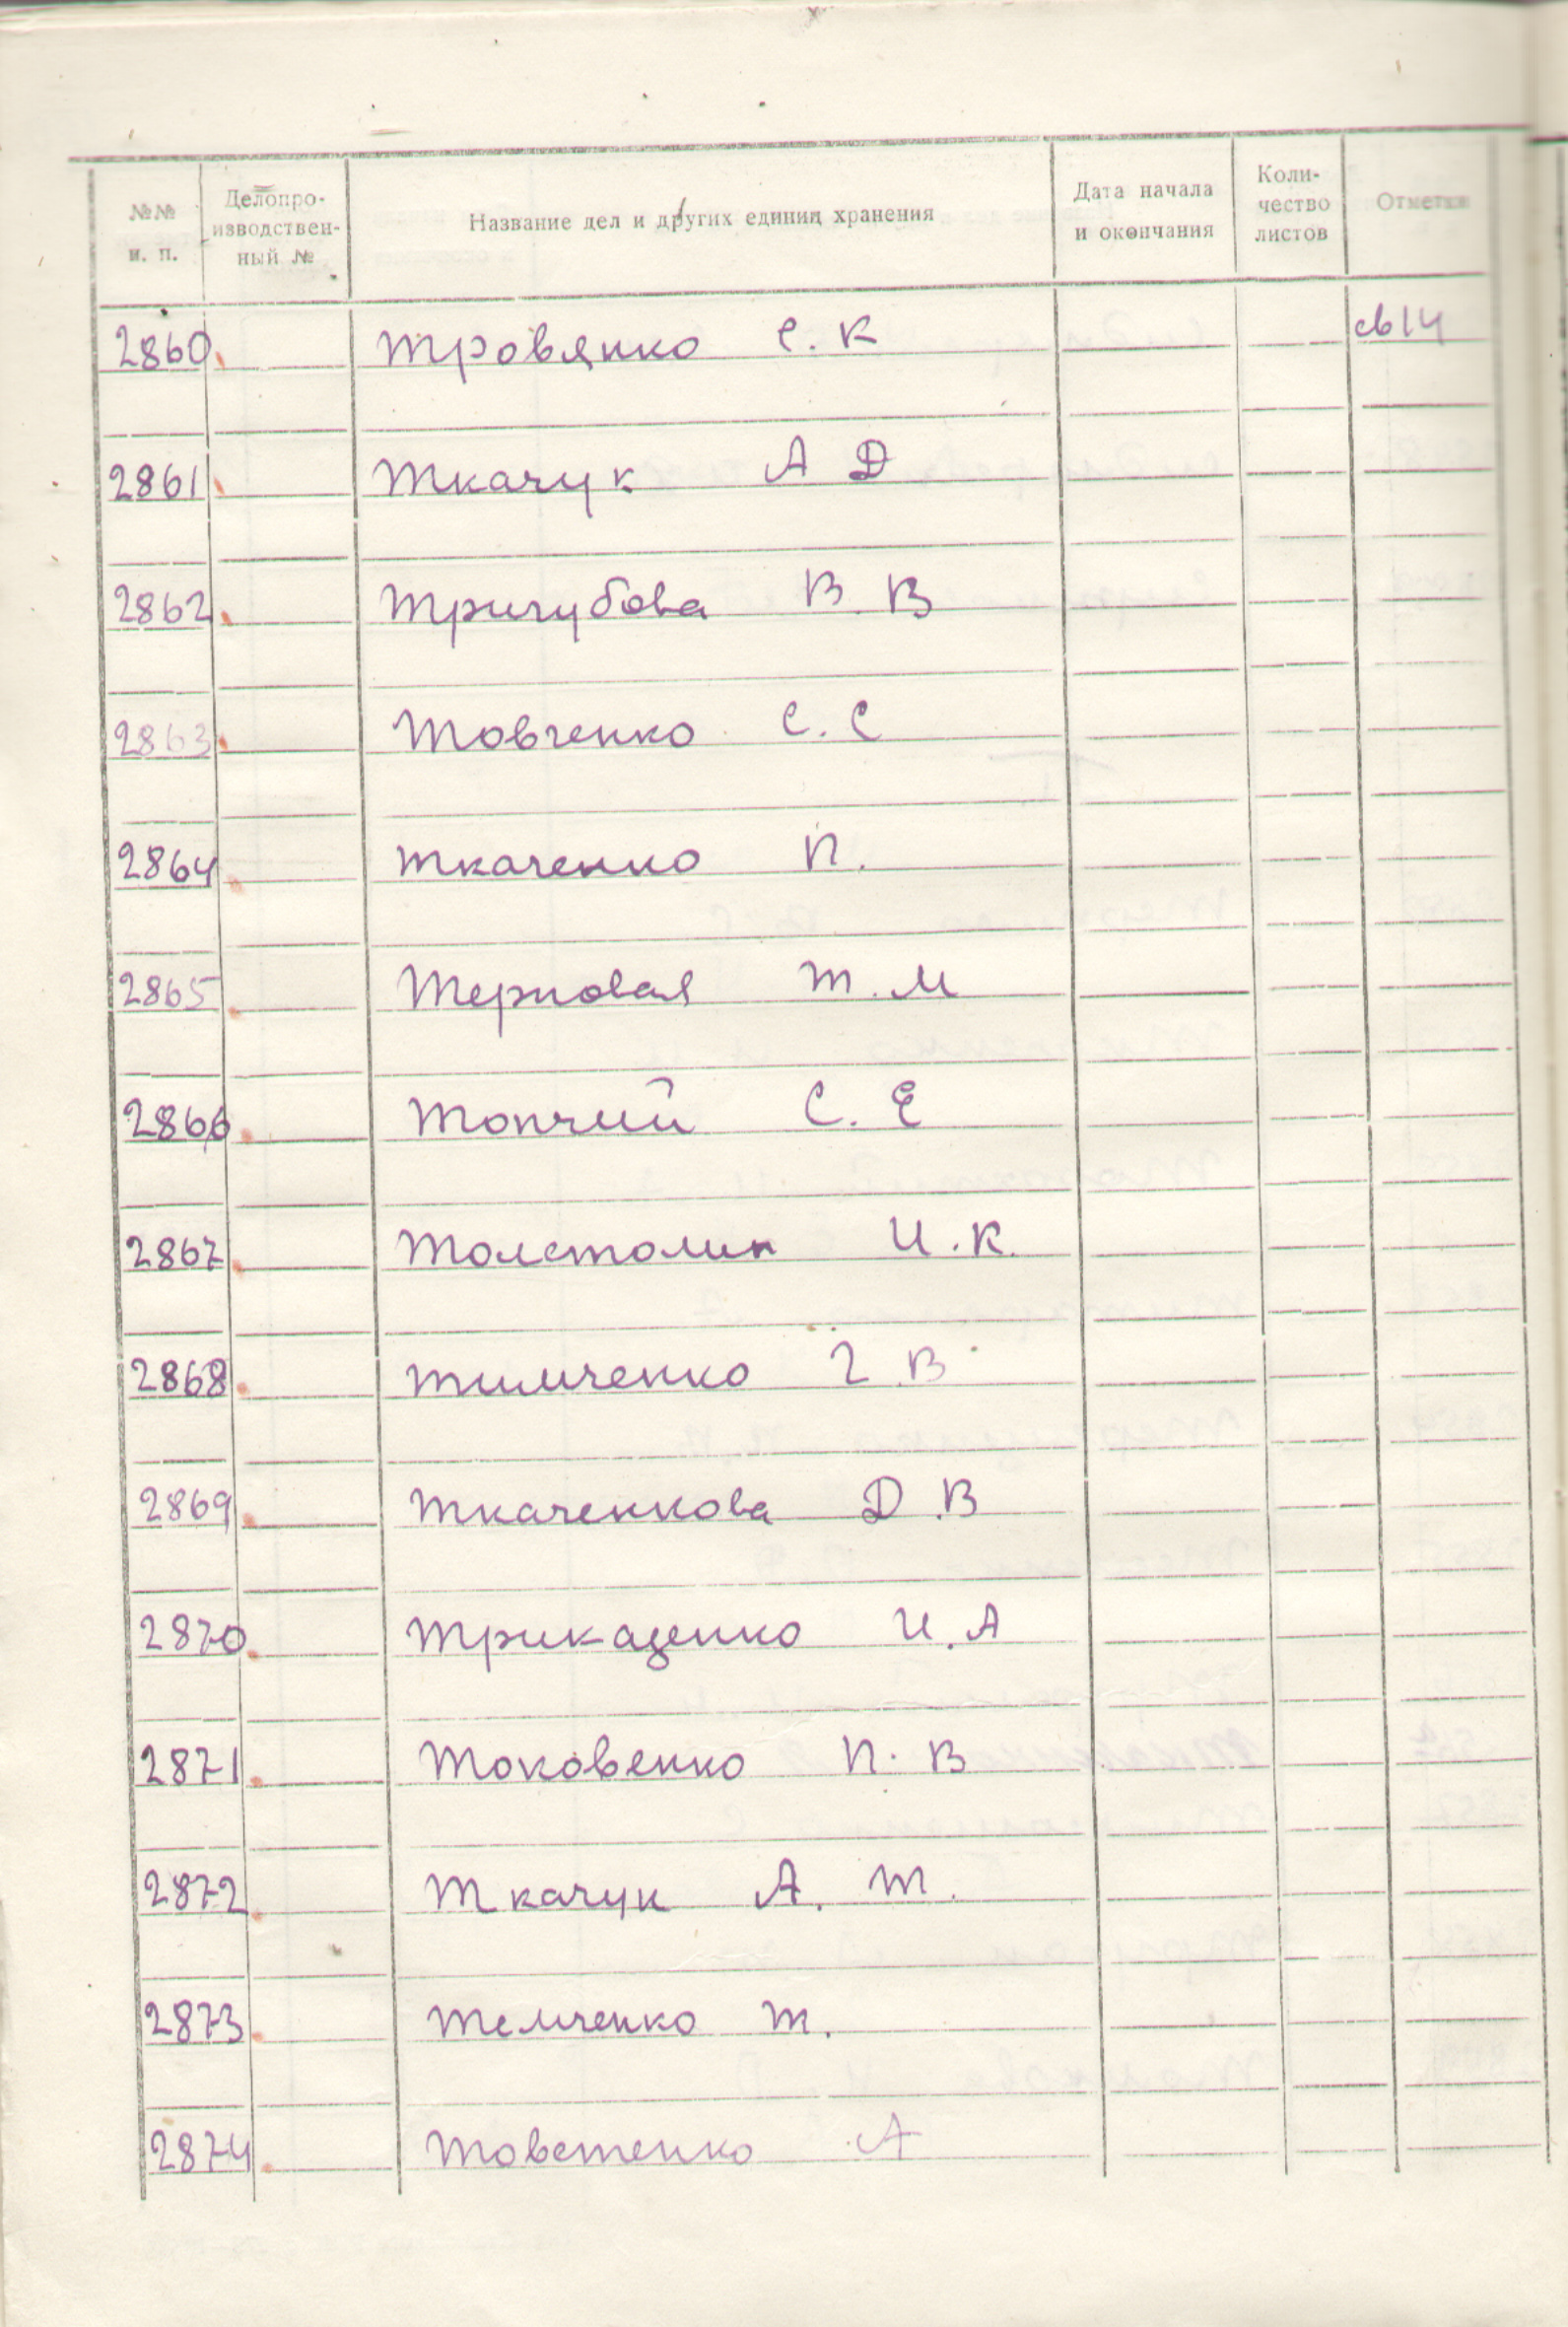 №№ п. п. Делопроизводственный № Название дел и других единиц хранения Дата начала и окончания Количество листов Отметки
2860. Тровянко С. К св 14
2861. Ткачук А Д
2862. Тричубова В. В
2863. Товченко С. С
2864. Ткаченко П.
2865. Терновая Т. М
2866. Топчий С. Е
2867. Толстолип И. К.
2868. Тимченко Г. В
2869. Ткаченкова Д. В
2870. Триказенко И. А
2871. Токовенко П. В
2872. Ткачук А. Т.
2873. Темченко Т.
2874. Товстенко А